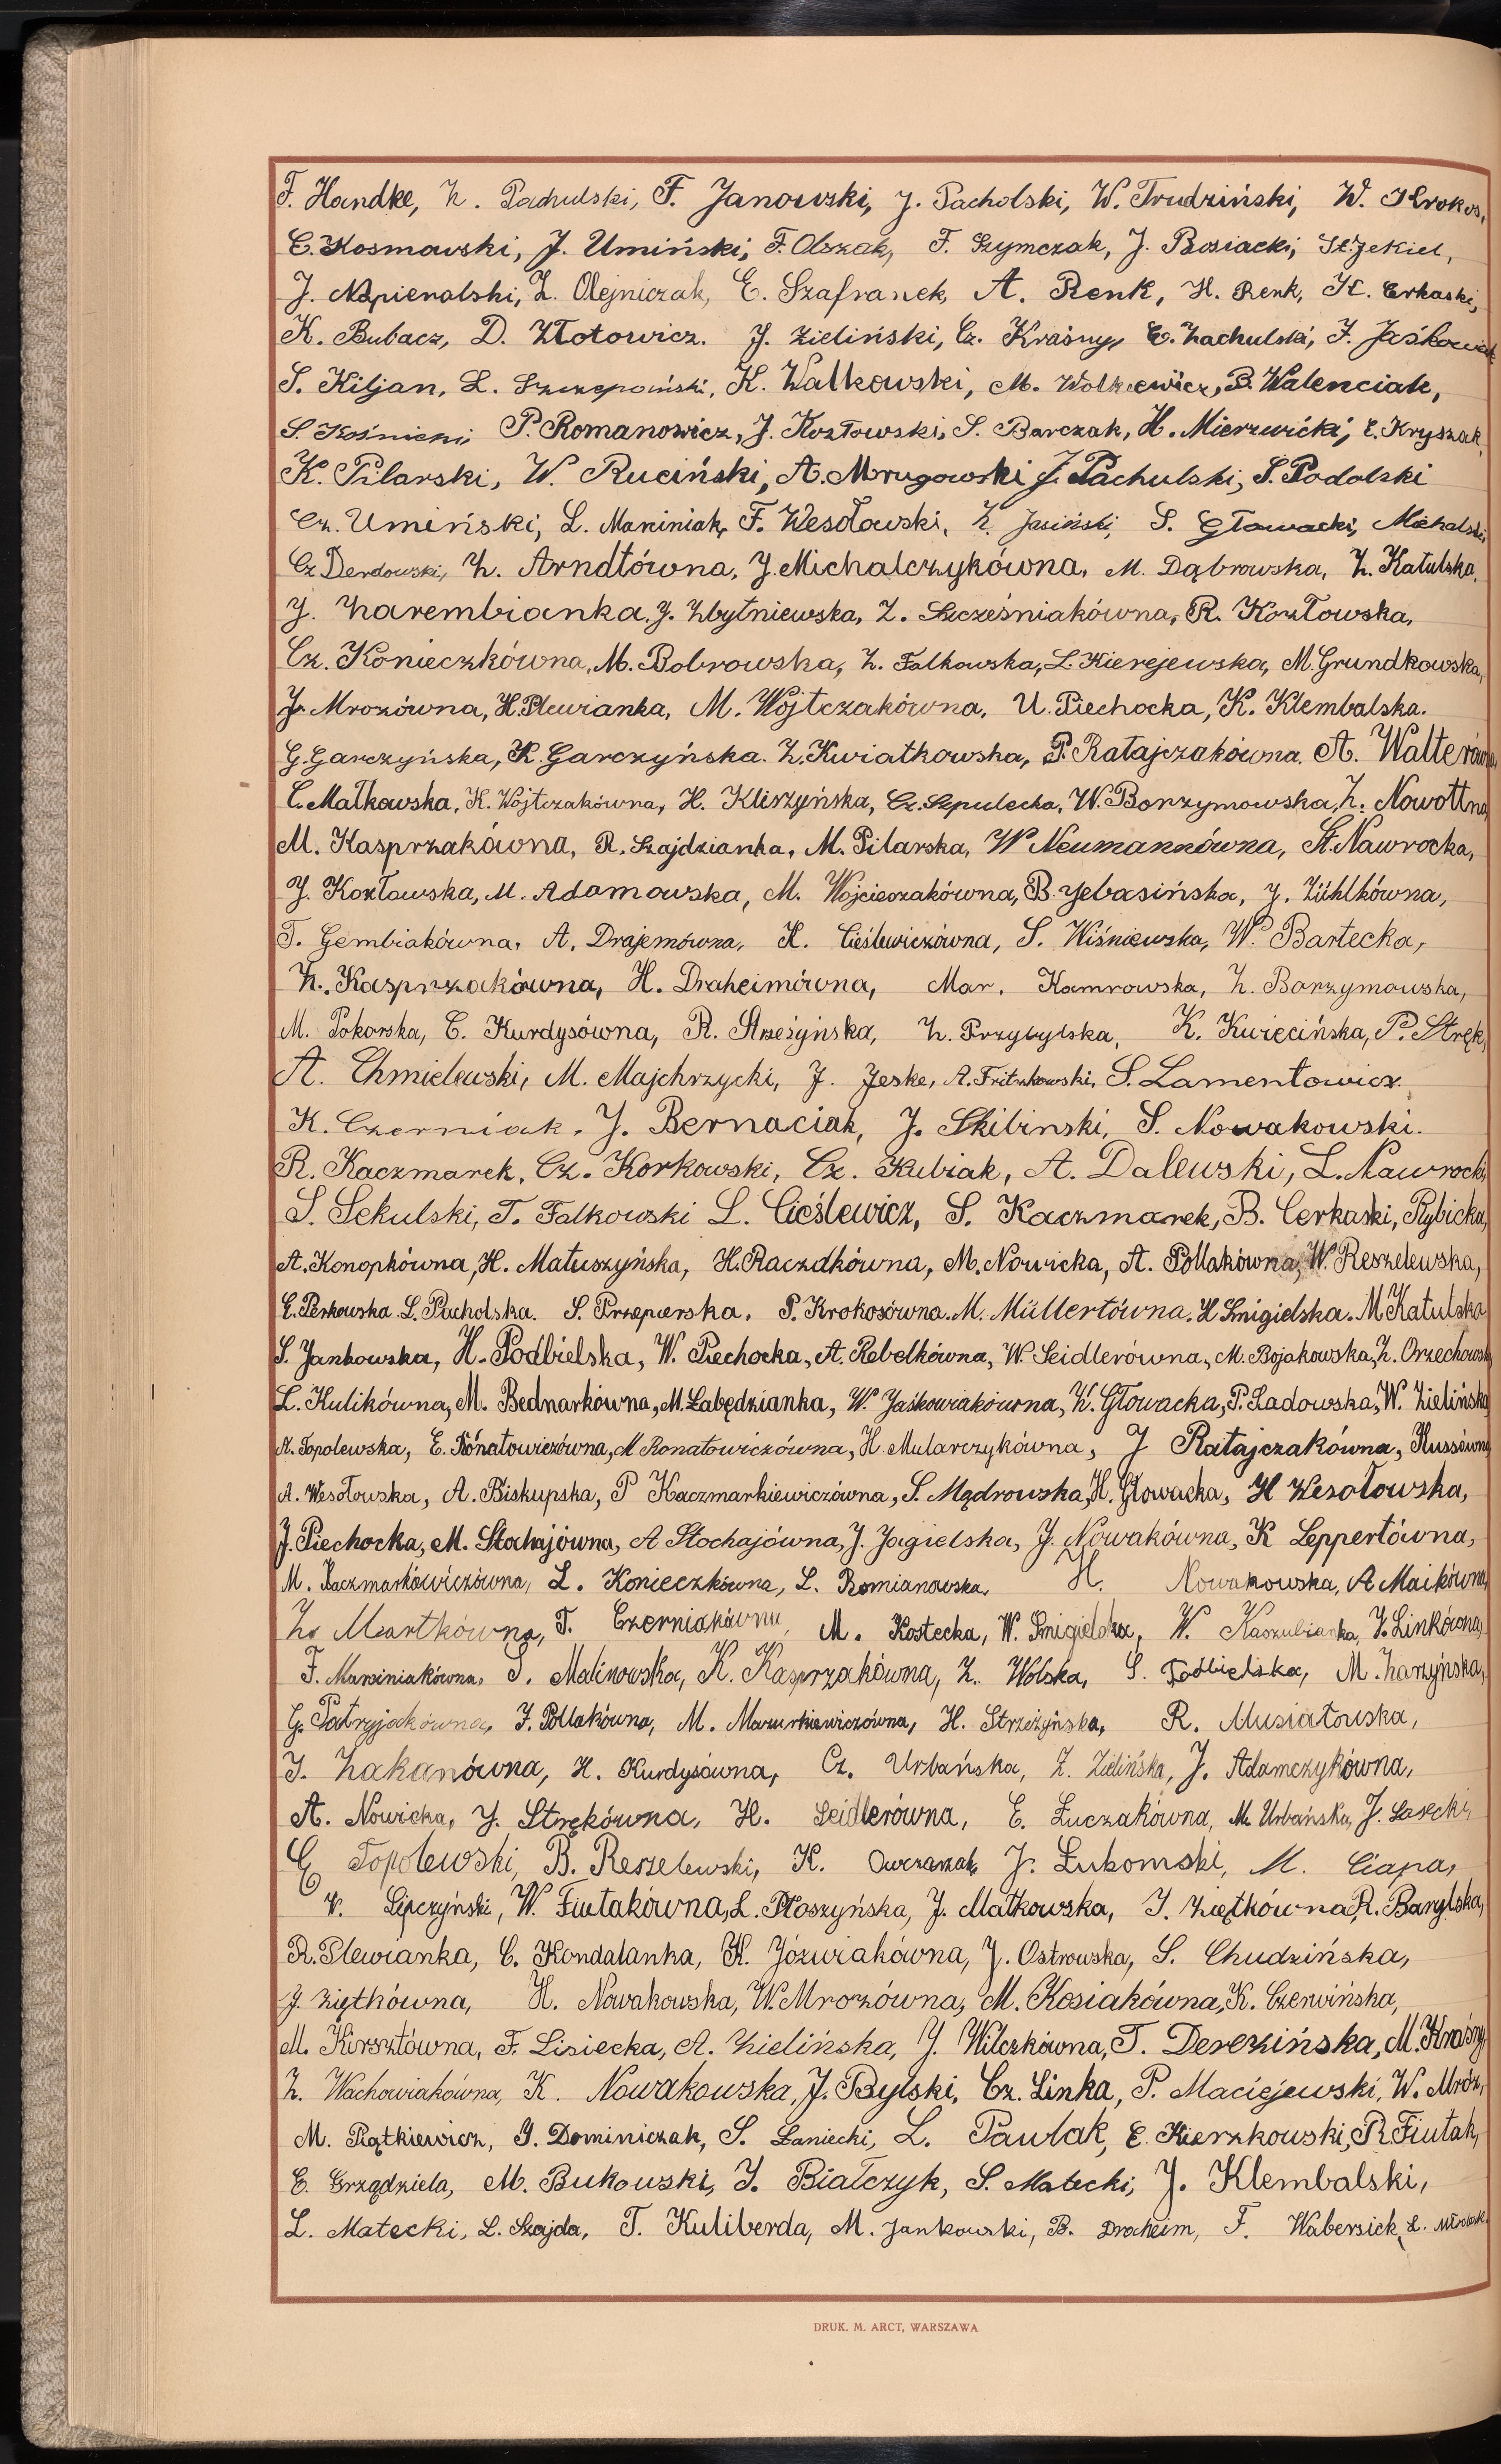 F. Handke, Z. Pachulski, F. Janowski, J. Pacholski, W. Trudziński, W. Krokos,
C. Kosmowski, J. Umiński, F. Olszak, F. Szymczak, J. Bosiacki, St. Jekiel,
J. Napieralski, Z. Olejniczak, E. Szafranek, A. Renk, H. Renk, K. Cerkaski,
K. Bubacz, D. Złotowicz. J. Zieliński, Cz. Kraśny, C. Zachulski, J. Jaśkowiak
S. Kiljan, L. Szczepański, K. Walkowski, M. Wolkiewicz, B. Walenciak,
S. Kośnicki, P. Romanowicz, J. Kozłowski, S. Barczak, H. Mierzwicki, E. Kryszak,
K. Pilarski, W. Ruciński, A. Mrugowski J. Pachulski, S. Podolski
Cz. Umiński, L. Marciniak, F. Wesołowski, Z. Jasiński, S. Głowacki, Michalski
Cz. Derdowski, Z. Arndtówna, J. Michalczykówna, M. Dąbrowska, Z. Katulska,
J. Zarembianka, J. Zbytniewska, Z. Szcześniakówna, R. Kozłowska,
Cz. Konieczkówna, M. Bobrowska, Z. Falkowska, L. Kierejewska, M. Grundkowska,
J. Mrozówna, H. Plewianka, M. Wojtczakówna, U. Piechocka, K. Klembalska.
G. Garczyńska, K. Garczyńska. Z. Kwiatkowska, P. Ratajczakówna, A. Walterówna,
C. Małkowska, K. Wojtczakówna, H. Kliszyńska, Cz. Szpulecka, W. Borzymowska, Z. Nowottna
M. Kasprzakówna, R. Szajdzianka, M. Pilarska, W Neumannówna, St. Nawrocka,
J. Kozłowska, M. Adamowska, M. Wojcieszakówna, B. Jebasińska, J. Zühlkówna,
T. Gembiakówna, A. Drajemówna, K. Cieślewiczówna, S. Wiśniewska, W. Bartecka,
Z. Kasprzakówna, H. Draheimówna, Mar. Kamrowska, Z. Borzymowska,
M. Pokorska, C. Kurdysówna, R. Strzeżyńska, Z. Przybylska, K. Kwiecińska, P. Stręk,
A. Chmielewski, M. Majchrzycki, J. Jeske, A. Fritzkowski, S. Lamentowicz
K. Czerniak, J. Bernaciak, J. Skibinski, S. Nowakowski.
R. Kaczmarek, Cz. Korkowski, Cz. Kubiak, A. Dalewski, L. Nawrocki,
S. Sekulski, T. Falkowski L. Cieślewicz, S. Kaczmarek, B. Cerkaski, Rybicka,
A. Konopkówna, H. Matuszyńska, H. Raczdkówna, M. Nowicka, A. Pollakówna, W. Reszelewska,
E. Perkowska L. Pacholska. S. Przepierska. P. Krokosówna. M. Müllertówna. H Śmigielska. M. Katulska
S. Jankowska, H. Podbielska, W. Piechocka, A. Rebelkówna, W. Seidlerówna, M. Bojakowska, Z. Orzechowska
L. Kulikówna, M. Bednarkówna, M. Łabędzianka, W. Jaśkowiakówna, K. Głowacka, P. Ladowska, W. Zielińska
A. Topolewska, E. Konatowiczówna, M Konatowiczówna, H. Mularczykówna, J Ratajczakówna, Kussówna
A. Wesołowska, A. Biskupska, P Kaczmarkiewiczówna, S. Mądrowska, H. Głowacka, H Wesołowska,
J. Piechocka, M. Stochajówna, A Stochajówna, J. Jagielska, J. Nowakówna, K Leppertówna,
M. Kaczmarkiewiczówna, L. Konieczkówna, L. Romianowska. H. Nowakowska, A Maikówna,
Z. Martkówna, T. Czerniakówna, M. Kostecka, W. Śmigielska, W. Kaszubianka, J. Linkówna,
F. Marciniakówna, S. Malinowska, K. Kasprzakówna, Z. Wolska, S. Podbielska, M. Zarzyńska,
G. Patryjakówna, J. Pollakówna, M. Mazurkiewiczówna, H. Strzeżyńska, R. Musiałowska,
J. Zakanówna, H. Kurdysówna, Cz. Urbańska, Z. Zielińska, J. Adamczykówna,
A. Nowicka, J. Strękówna, H. Seidlerówna, E. Łuczakówna, M. Urbańska, J. Łasecki,
C. Topolewski, B. Reszelewski, K. Owczarzak J. Łukomski, M. Ciapa,
W. Lipczyński, W. Fiutakówna, L. Płoszyńska, J. Małkowska, J. Ziętkówna, R. Barylska,
R. Plewianka, C. Kondalanka, K. Józwiakówna, J. Ostrowska, S. Chudzińska,
J. Ziętkówna, H. Nowakowska, W. Mrozówna, M. Kosiakówna, K. Czerwińska,
M. Kirsztówna, F. Lisiecka, A. Zielińska, J. Wilczkówna, T. Derezińska, M. Kraśny,
Z. Wachowiakówna, K. Nowakowska, J. Bylski, Cz. Linka, P. Maciejewski, W. Mróz,
M. Piątkiewicz, J. Dominiczak, S. Łaniecki, L. Pawlak, E. Kierzkowski, R. Fiutak,
C. Grządziela, M. Bukowski, J. Białczyk, S. Małecki, J. Klembalski,
L. Małecki, L. Szajda, T. Kuliberda, M. Jankowski, B. Draheim, F. Wabersick, L.
DRUK. M. ARCT, WARSZAWA